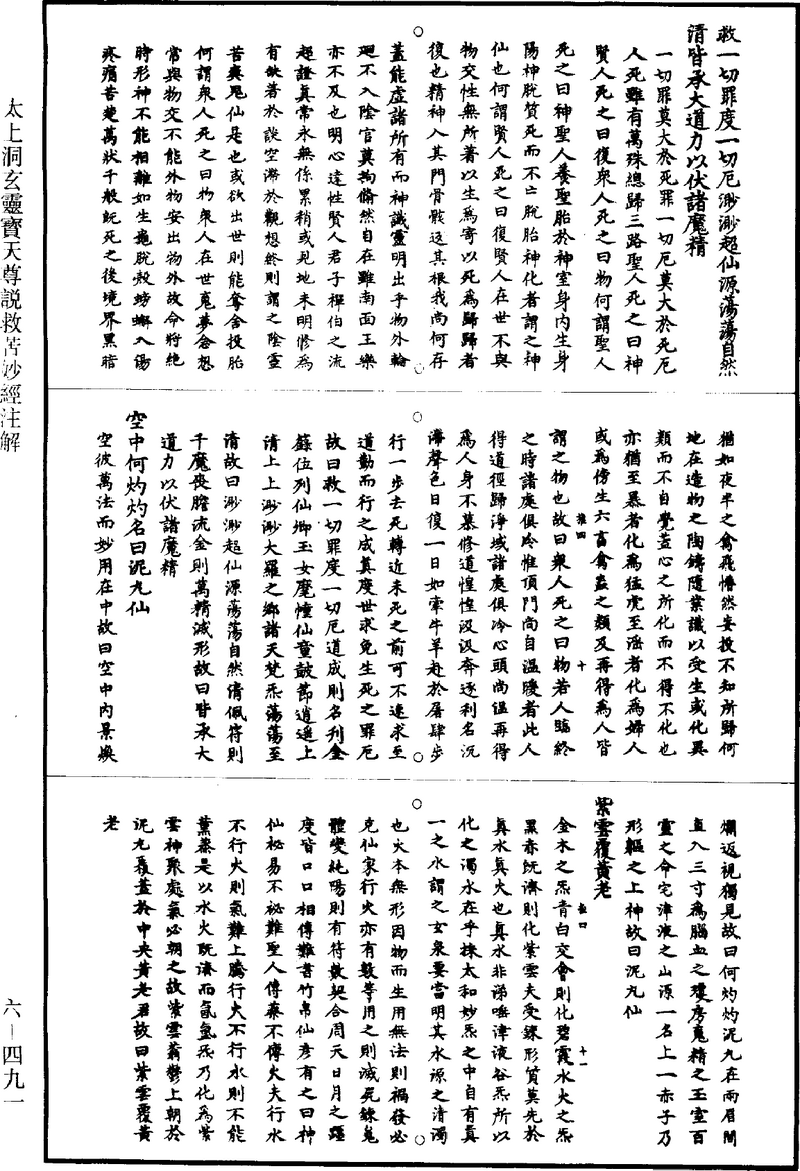 救一切罪度一切厄渺渺超仙源蕩蕩自然
清皆承大道力以伏諸魔精
一切罪莫大於死罪一切厄莫大於死厄
人死雖有萬殊總歸三路聖人死之曰神
賢人死之曰復衆人死之曰物何謂聖人
死之曰神聖人養聖胎於神室身内生身
陽神脫質死而不亡脫胎神化者謂之神
仙也何謂賢人死之曰復賢人在世不與
物交性無所著以生爲寄以死爲歸歸者
復也精神入其門骨骸返其根我尚何存
蓋能虛諸所有而神識靈明出乎物外輪
廻不入陰官莫拘翛然自在雖南面王樂
亦不及也明心達性賢人君子禪伯之流
超證真常永無係累稍或見地未明修爲
有缺著於談空滯於觀想終則謂之陰靈
苦爽鬼仙是也或欲出世則能奪舍投胎
何謂衆人死之曰物衆人在世寬夢念想
常與物交不能外物安出物外故命將絶
時形神不能相離如生龜脫殻螃蠏入湯
疼痛苦楚萬狀千般旣死之後境界黑暗
猶如夜半之禽飛懵然妄投不知所歸何
地在造物之陶鑄隨業識以受生或化異
類而不自覺蓋心之所化而不得不化也
亦猶至暴者化爲猛虎至淫者化爲婦人
或爲傍生六畜禽蟲之類及再得爲人皆
謂之物也故曰衆人死之曰物若人臨終
之時諸處俱冷惟頂門尚自温暖者此人
得道徑歸淨域諸處俱冷心頭尚温再得
爲人身不慕修道惶惶汲汲奔逐利名沉
滯聲色日復一日如牽牛羊赴於屠肆步
行一步去死轉近未死之前可不速求至
道勤而行之成真度世求免生死之罪厄
故曰救一切罪度一切厄道成則名刋金
籙位列仙鄉玉女麾幢仙童鼓節逍遥上
清上上渺渺大羅之鄉諸天梵炁蕩蕩至
清故曰渺渺超仙源蕩蕩自然清佩符則
千魔喪膽流金則萬精滅形故曰皆承大
道力以伏諸魔精
空中何灼灼名曰泥丸仙
空彼萬法而妙用在中故曰空中内景煥
爛返視獨見故曰何灼灼泥丸在兩眉間
直入三寸爲腦血之瓊房魂精之玉室百
靈之命宅津液之山源一名上一赤子乃
形軀之上神故曰泥丸仙
紫雲覆黄老
金木之炁青白交會則化碧霞水火之炁
黑赤旣濟則化紫雲夫受鍊形質莫先於
真水真火也真水非涕唾津液谷炁所以
化之濁水在乎採太和妙炁之中自有真
一之水謂之玄泉要當明其水源之清濁
也火本無形因物而生用無法則禍發必
克仙家行火亦有數等用之則滅死鍊鬼
體變純陽則有符數契合周天日月之躔
度皆口口相傳難著竹帛仙彦有之曰神
仙祕易不祕難聖人傳藥不傳火夫行水
不行火則氣難上騰行火不行水則不能
薰蒸是以水火旣濟而氤氲炁乃化爲紫
雲神聚處氣必朝之故紫雲蓊鬱上朝於
泥丸覆蓋於中央黄老君故曰紫雲覆黄
老
太上洞玄靈寶天尊説救苦妙經注解
六－四九一